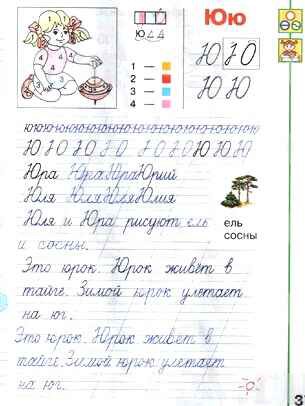 Юю
Ю
1 —
2 —
3 —
4 —
Ю Ю
Ю Ю
ююююююююююююююююююю
Ю Ю Ю Ю Ю Ю Ю Ю Ю Ю Ю
Юра Юра Юра Юрий
Юля Юля Юля Юлия
Юля и Юра рисуют ель
и сосны.
ель
сосны
Это юрок. Юрок живёт в
тайге. Зимой юрок улетает
на юг.
Это юрок. Юрок живет в
тайге. Зимой юрок улетает
на юг.
3